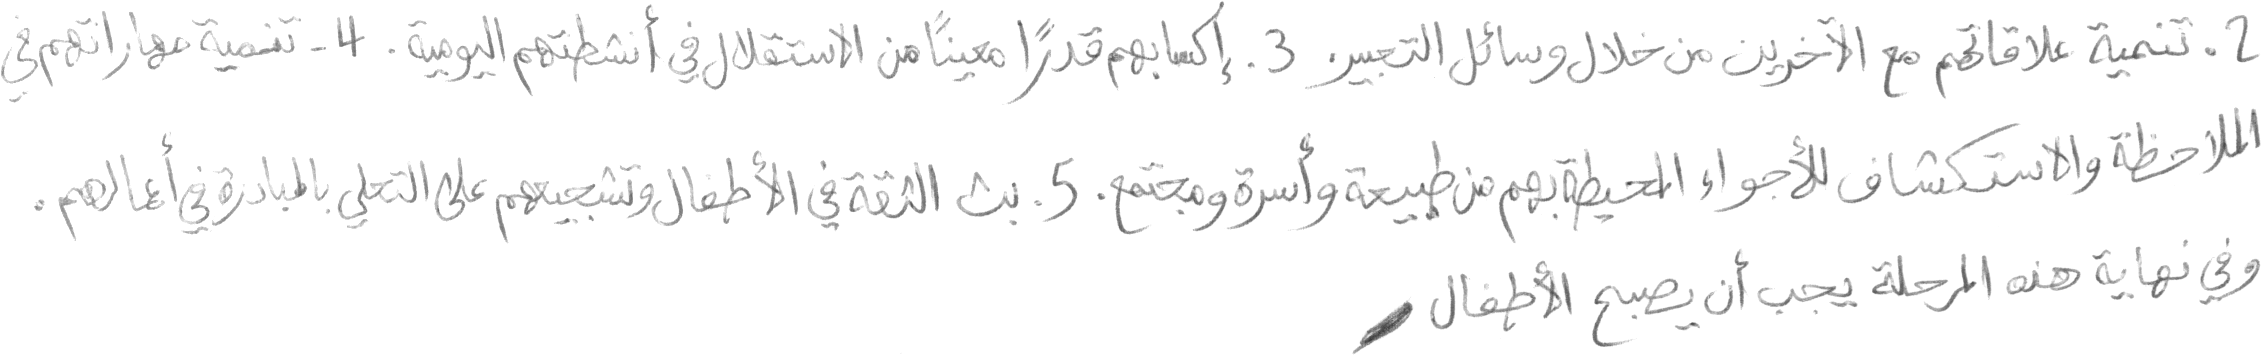 2. تنمية علاقاتهم مع الآخرين من خلال وسائل التعبير. 3. إكسابهم قدرًا معينًا من الاستقلال في أنشطتهم اليومية. 4- تنمية مهاراتهم في
الملاحظة والاستكشاف للأجواء المحيطة بهم من طبيعة وأسرة ومجتمع. 5. بث الثقة في الأطفال وتشجيعهم على التحلي بالمبادرة في أعمالهم.
وفي نهاية هذه المرحلة يجب أن يصبح الأطفال